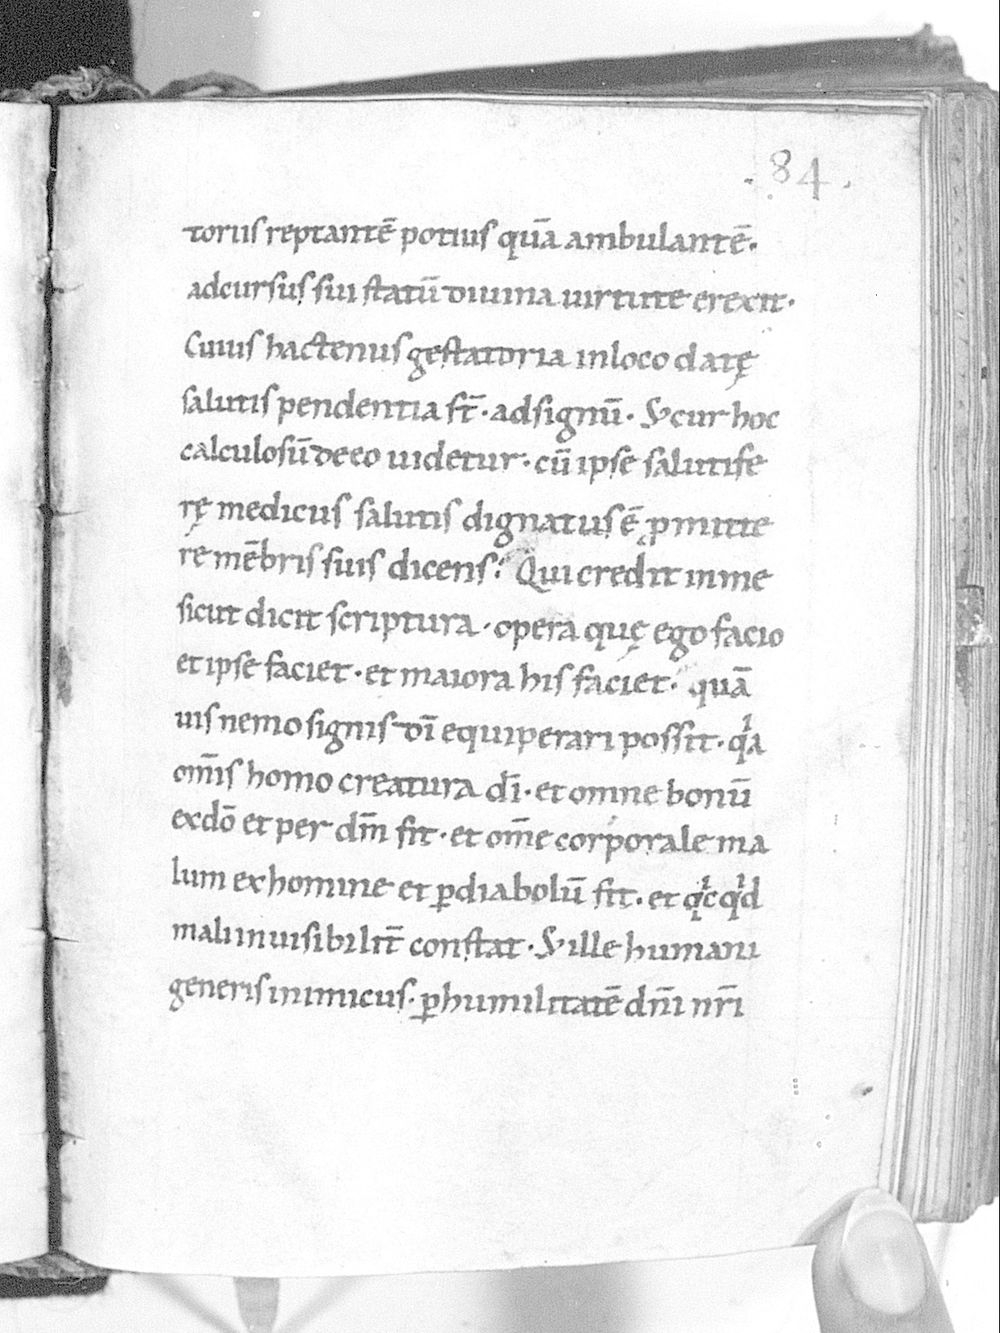 .84.
toriis reptantē potius quā ambulantē.
adcursus sui statū diuina uirtute erexit.
Cuius hactenus gestatoria inloco datę
salutis pendentia st̄. adsignū. S; cur hoc
calculosū deeo uidetur. cū ipse salutife
rę medicus salutis dignatus ē ꝓmitte
re mēbris suis dicens; Qui credit in me
sicut dicit scriptura. opera quę ego facio
et ipse faciet. et maiora his faciet. quā
uis nemo signis dī equiperari possit. qͥa
om̄is homo creatura dī. et omne bonū
exdō et per dm̄ fit. et om̄e corporale ma
lum ex homine et ꝑdiabolū fit. et qͥcqͥd
mali inuisibilit̄ constat. S; ille humani
generis inimicus. ꝑhumilitatē dn̄i nr̄i